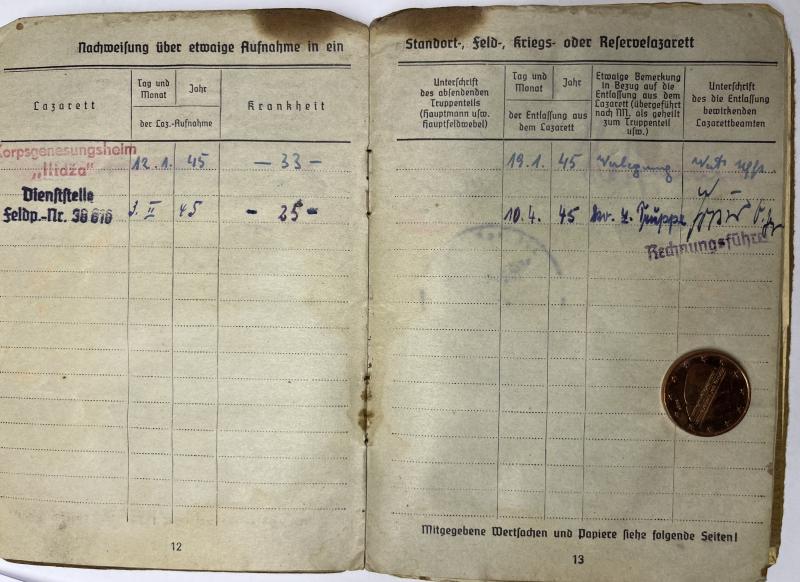 Nachweisung über etwaige Aufnahme in ein
Lazarett
Tag und Monat
Jahr
der Laz.-Aufnahme
Krankheit
Korpsgenesungsheim
„Ilidža“
12.1. 45 – 33 –
Dienststelle
Feldp.-Nr. 36616
3. II 45 – 25 –
12
Standort-, Feld-, Kriegs- oder Reservelazarett
Unterschrift
des absendenden
Truppenteils
(Hauptmann usw.
Hauptfeldwebel)
Tag und
Monat
Jahr
der Entlassung aus
dem Lazarett
Etwaige Bemerkung
in Bezug auf die
Entlassung aus dem
Lazarett (übergeführt
nach NN. als geheilt
zum Truppenteil
usw.)
Unterschrift
des die Entlassung
bewirkenden
Lazarettbeamten
19.1. 45 Verlegung Uffz.
10.4. 45 z. Truppe
Rechnungsführer
Mitgegebene Wertsachen und Papiere siehe folgende Seiten!
13